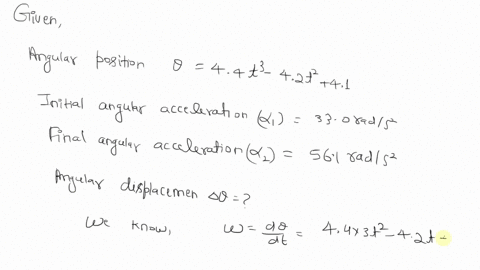 Given,
Angular position θ = 4.4t³ - 4.2t² + 4.1
Initial angular acceleration (α₁) = 33.0 rad/s²
Final angular acceleration (α₂) = 56.1 rad/s²
Angular displacemen Δθ = ?
We know, ω = dθ/dt = 4.4×3t² - 4.2t -